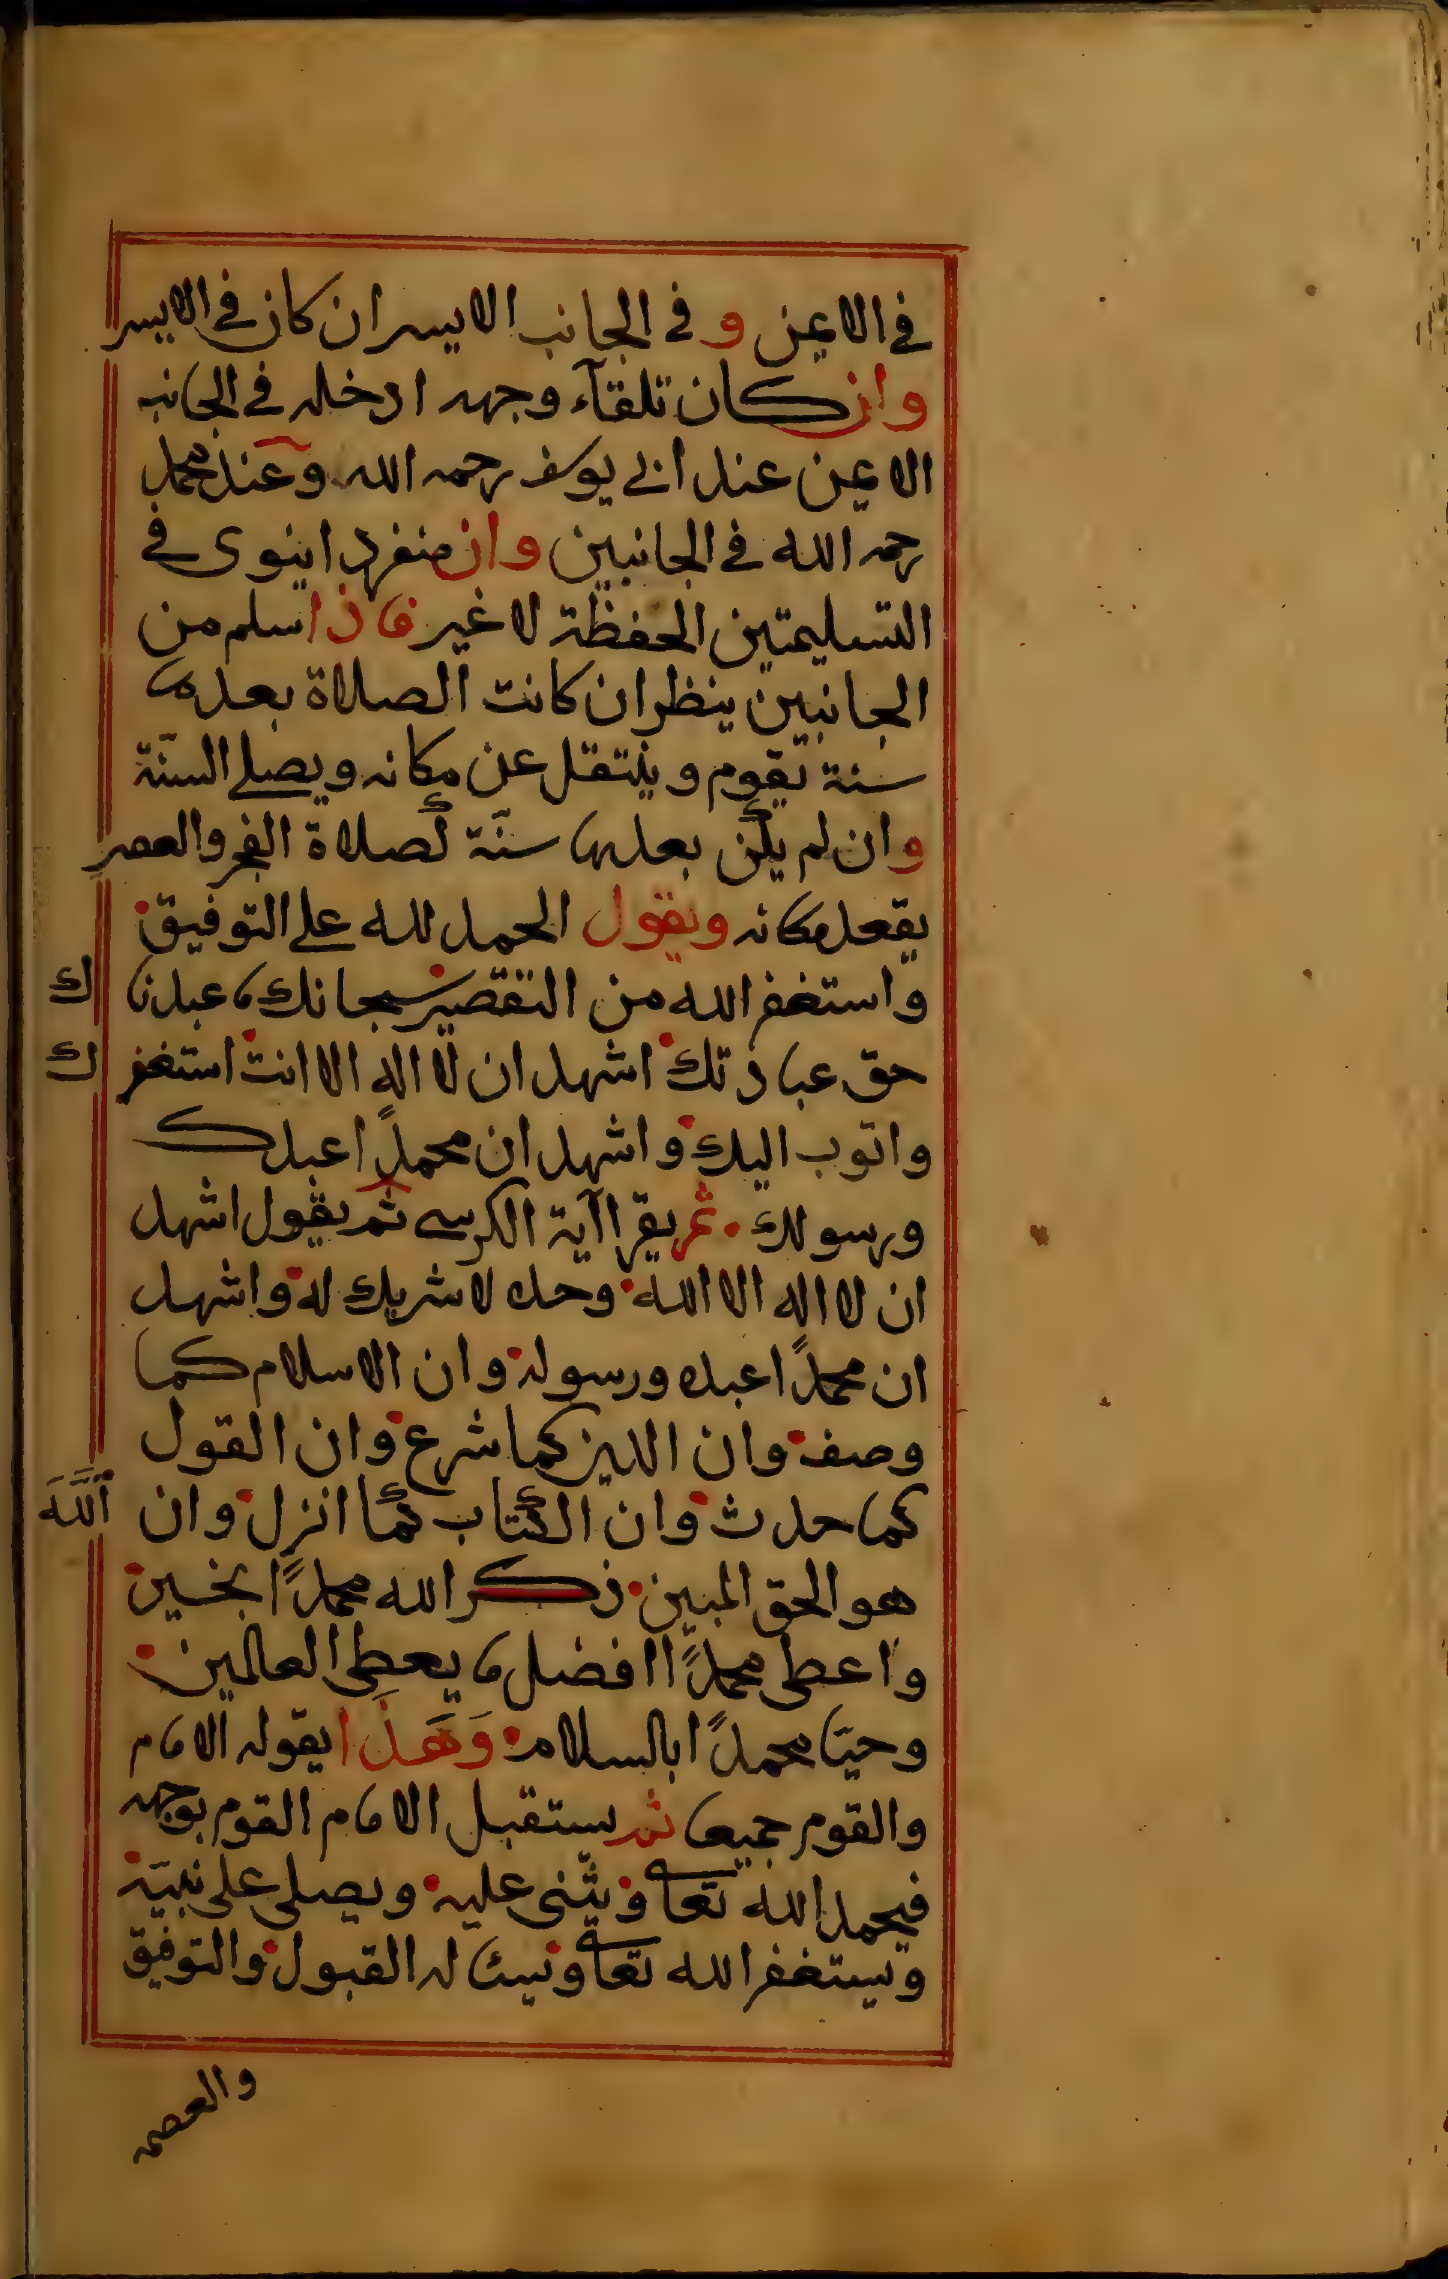 في الايمن وفي الجانب الايسر ان كان في الايسر
وان كان تلقآء وجهه ادخله في الجانب
الايمن عند ابي يوسف رحمه الله وعند محمد
رحمه الله في الجانبين وان منفردا ينوى في
التسليمتين الحفظة لا غير فاذا سلم من
الجانبين ينظر ان كانت الصلاة بعدها
سنة يقوم وينتقل عن مكانه ويصلي السنّة
وان لم يكن بعدها سنّة كصلاة الفجر والعصر
يقعد مكانه ويقول الحمد لله على التوفيق
واستغفر الله من التقصير سبحانك ما عبدناك
حق عبادتك اشهد ان لا اله الا انت استغفرك
واتوب اليك واشهد ان محمدًا عبدك
ورسولك ثم يقرا آية الكرسي ثم يقول اشهد
ان لا اله الا الله وحده لا شريك له واشهد
ان محمدًا عبده ورسوله وان الاسلام كما
وصف وان الدين كما شرع وان القول
كما حدث وان الكتاب كما انزل وان اللّه
هو الحق المبين ذكر الله محمدًا بخير
واعطى محمدًا افضل ما يعطى العالمين
وحيّا محمدًا بالسلام وَهَذَا يقوله الامام
والقوم جميعا ثم يستقبل الامام القوم بوجهه
فيحمد الله تعالى ويثنى عليه ويصلى على نبيّه
ويستغفر الله تعالى ويسئاله القبول والتوفيق
والعصمة